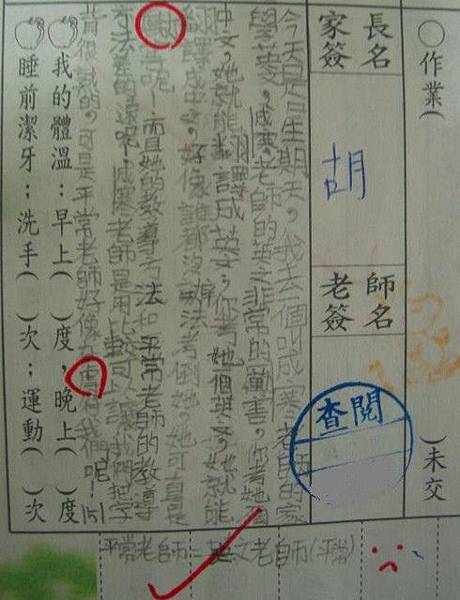 ○作業( )未交
家長簽名
胡
老師簽名
查閱
今天是星期天，我去一個叫咸寒老師的家
學英文，咸寒老師的英文非常的勵害，你考她
中文，她就能翻譯成英文，你考她一個英文，她就能
翻譯成中文，好像誰都沒辦法考倒她，她可真是
勵害呢！而且她的教導方法和平常老師的教導
方法差的遠呢，咸寒老師是用比較可以讓我們把字
背很熟的，可是平常老師好像在虐待我們呢！151
我的體溫：早上( )度，晚上( )度
睡前潔牙；洗手( )次；運動( )次
平常老師=英文老師(平常)